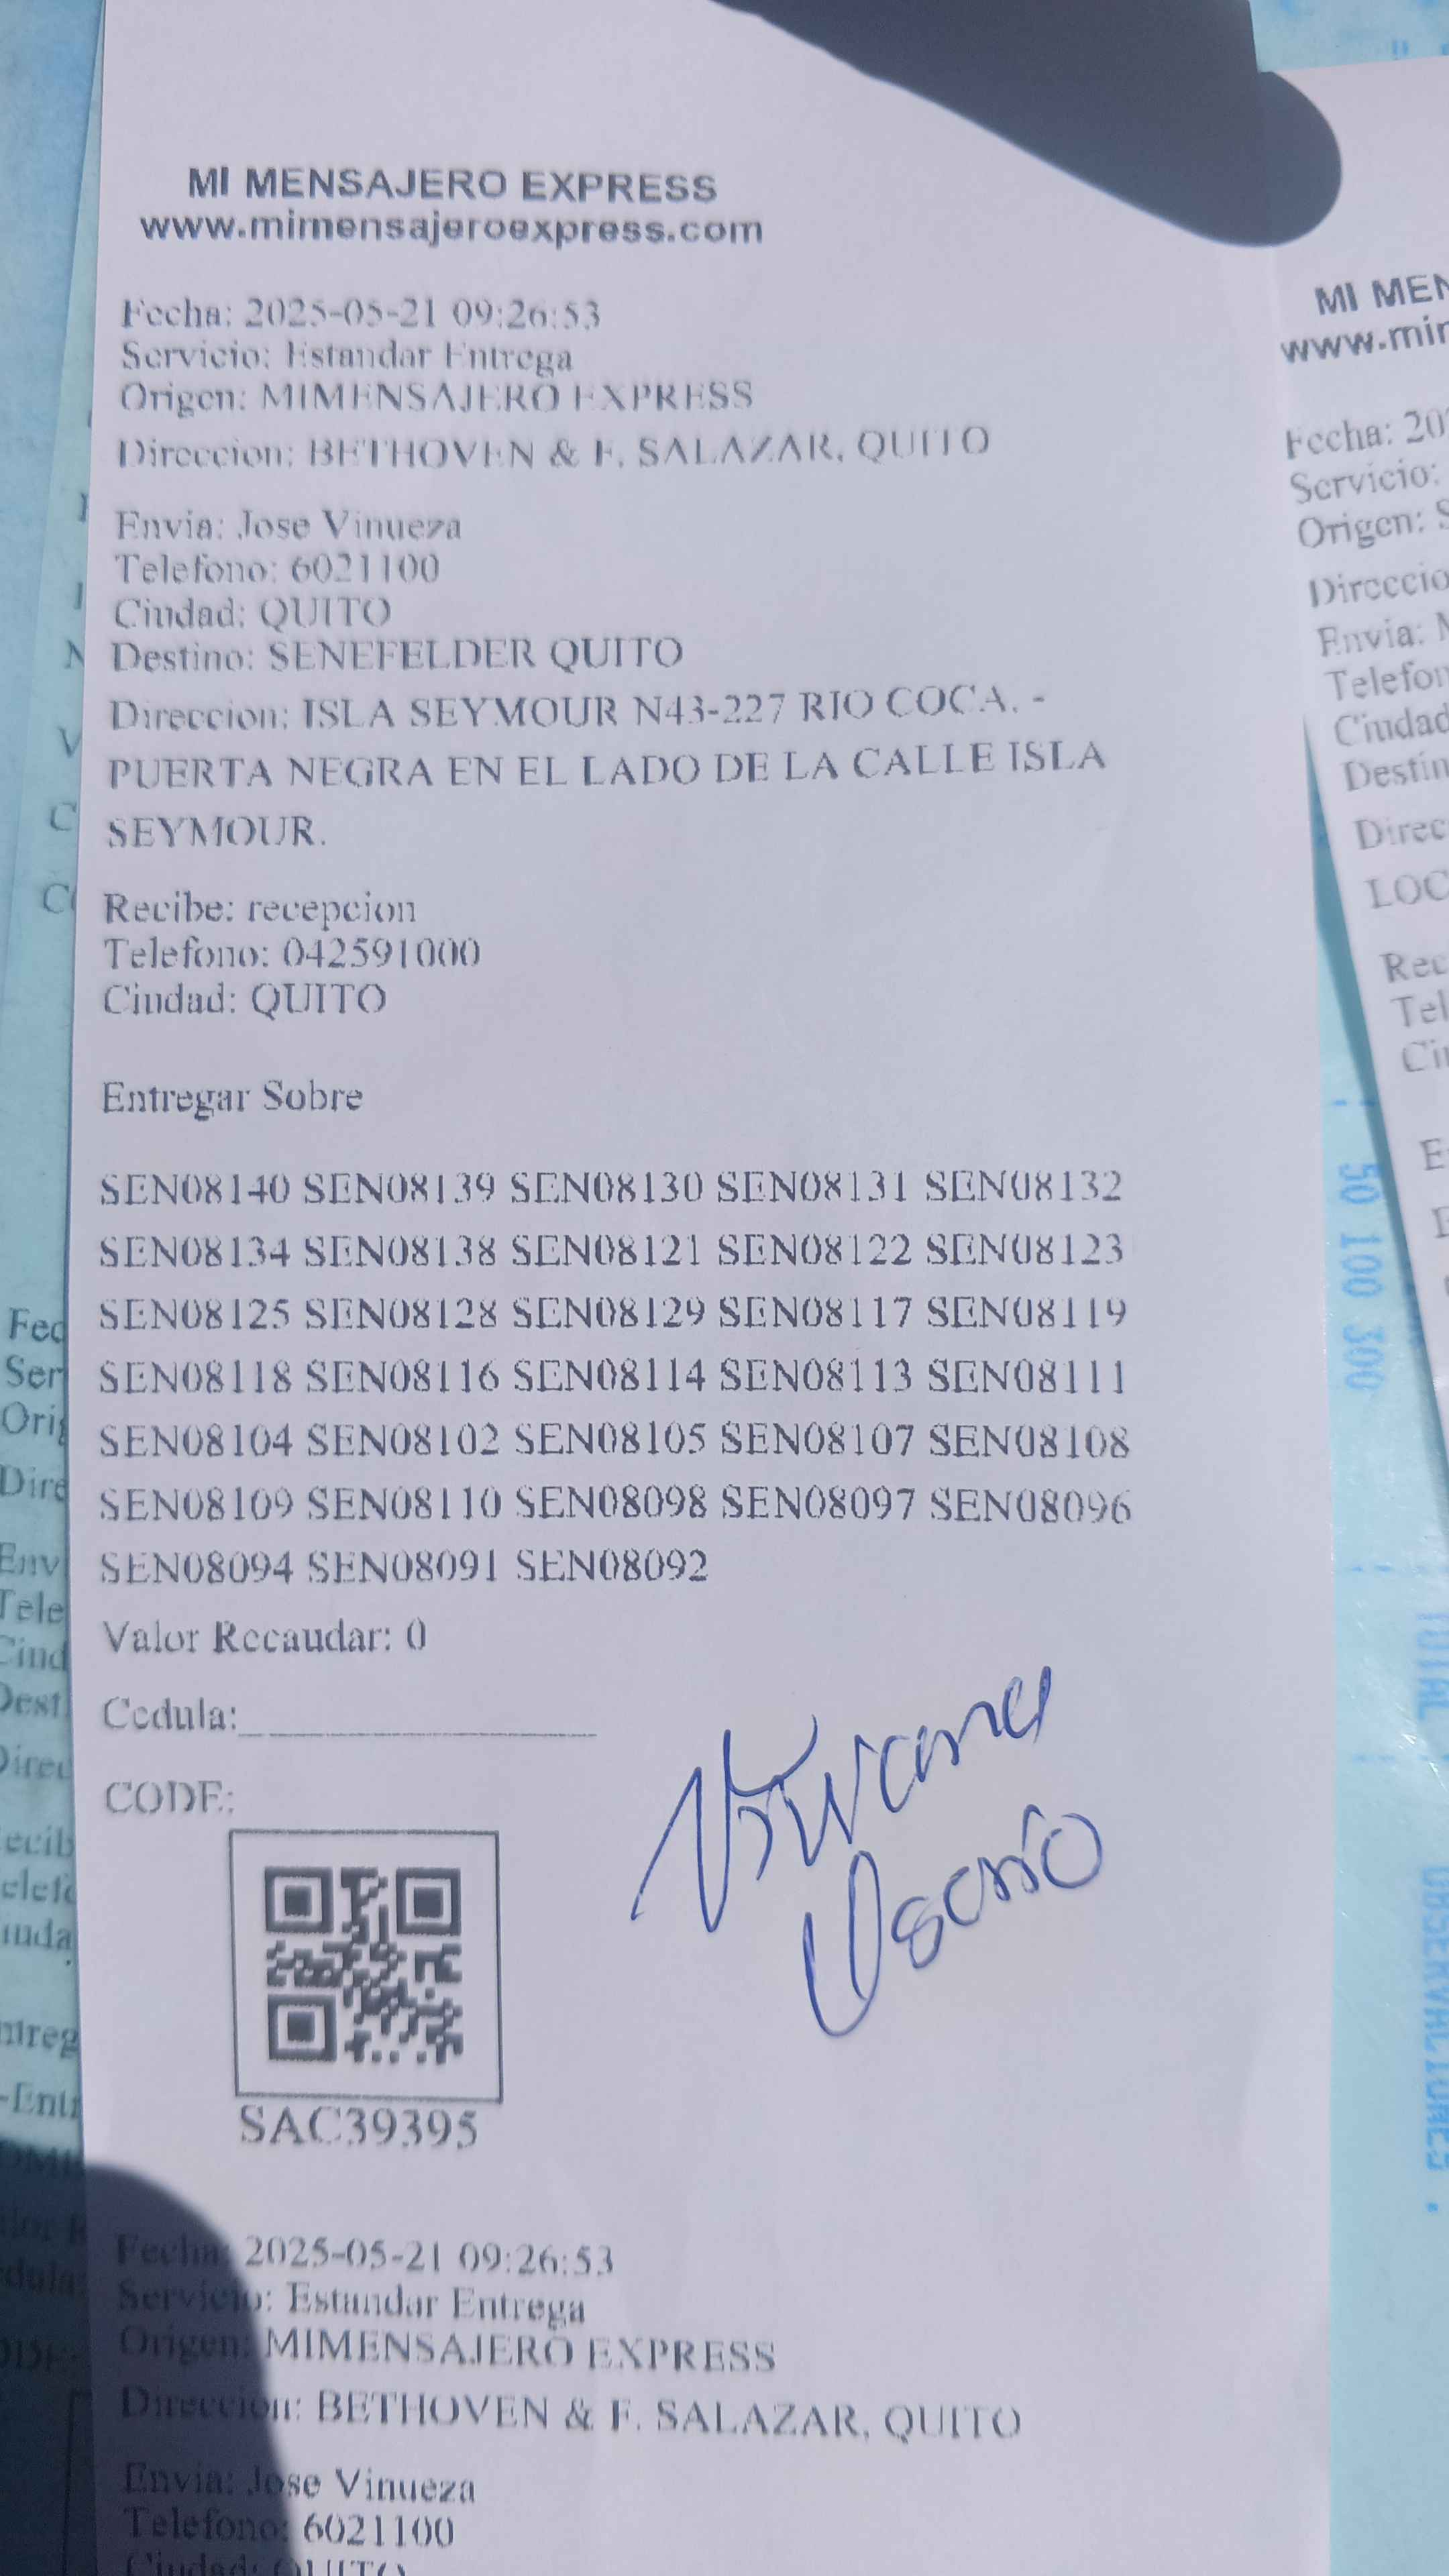 MI MENSAJERO EXPRESS
www.mimensajeroexpress.com
Fecha: 2025-05-21 09:26:53
Servicio: Estandar Entrega
Origen: MIMENSAJERO EXPRESS
Direccion: BETHOVEN & F. SALAZAR, QUITO
Envia: Jose Vinueza
Telefono: 6021100
Ciudad: QUITO
Destino: SENEFELDER QUITO
Direccion: ISLA SEYMOUR N43-227 RIO COCA. -
PUERTA NEGRA EN EL LADO DE LA CALLE ISLA
SEYMOUR.
Recibe: recepcion
Telefono: 042591000
Ciudad: QUITO
Entregar Sobre
SEN08140 SEN08139 SEN08130 SEN08131 SEN08132
SEN08134 SEN08138 SEN08121 SEN08122 SEN08123
SEN08125 SEN08128 SEN08129 SEN08117 SEN08119
SEN08118 SEN08116 SEN08114 SEN08113 SEN08111
SEN08104 SEN08102 SEN08105 SEN08107 SEN08108
SEN08109 SEN08110 SEN08098 SEN08097 SEN08096
SEN08094 SEN08091 SEN08092
Valor Recaudar: 0
Cedula:
CODE:
Viviana
SAC39395
Fecha: 2025-05-21 09:26:53
Servicio: Estandar Entrega
Origen: MIMENSAJERO EXPRESS
Direccion: BETHOVEN & F. SALAZAR, QUITO
Envia: Jose Vinueza
Telefono: 6021100
Ciudad: QUITO
MI MEN
www.mim
Fecha: 20
Servicio:
Origen: S
Direccio
Envia:
Telefon
Ciudad
Destin
Direc
LOC
Rec
Tel
50 100 300
TOTAL
OBSERVACIONES